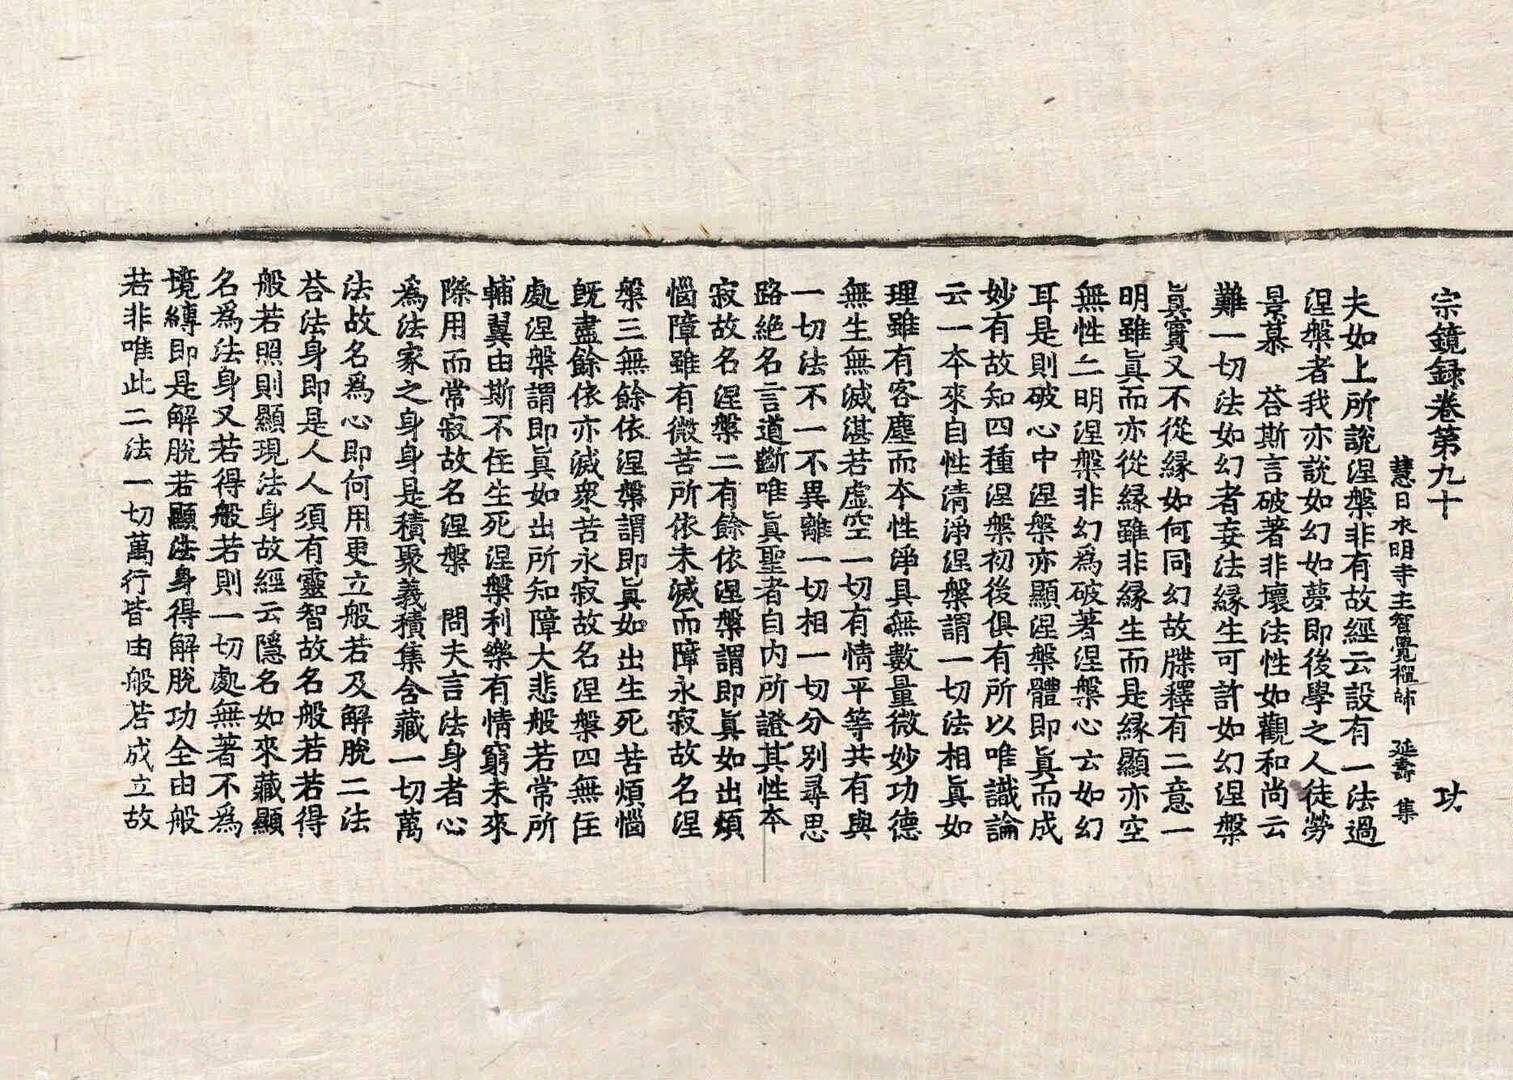 宗鏡録卷第九十 功
慧日永明寺主智覺禪師 延壽 集
夫如上所說涅槃非有故經云設有一法過
涅槃者我亦說如幻如夢即後學之人徒勞
景慕 荅斯言破著非壞法性如觀和尚云
難一切法如幻者妄法緣生可許如幻涅槃
真實又不從緣如何同幻故牒釋有二意一
明雖真而亦從緣雖非緣生而是緣顯亦空
無性二明涅槃非幻為破著涅槃心云如幻
耳是則破心中涅槃亦顯涅槃體即真而成
妙有故知四種涅槃初後俱有所以唯識論
云一本來自性清淨涅槃謂一切法相真如
理雖有客塵而本性淨具無數量微妙功德
無生無滅湛若虛空一切有情平等共有與
一切法不一不異離一切相一切分別尋思
路絕名言道斷唯真聖者自內所證其性本
寂故名涅槃二有餘依涅槃謂即真如出煩
惱障雖有微苦所依未滅而障永寂故名涅
槃三無餘依涅槃謂即真如出生死苦煩惱
旣盡餘依亦滅衆苦永寂故名涅槃四無住
處涅槃謂即真如出所知障大悲般若常所
輔翼由斯不住生死涅槃利樂有情窮未來
際用而常寂故名涅槃 問夫言法身者心
為法家之身身是積聚義積集含藏一切萬
法故名為心即何用更立般若及解脫二法
荅法身即是人人須有靈智故名般若若得
般若照則顯現法身故經云隱名如來藏顯
名為法身又若得般若則一切處無著不為
境縛即是解脫若顯法身得解脫功全由般
若非唯此二法一切萬行皆由般若成立故